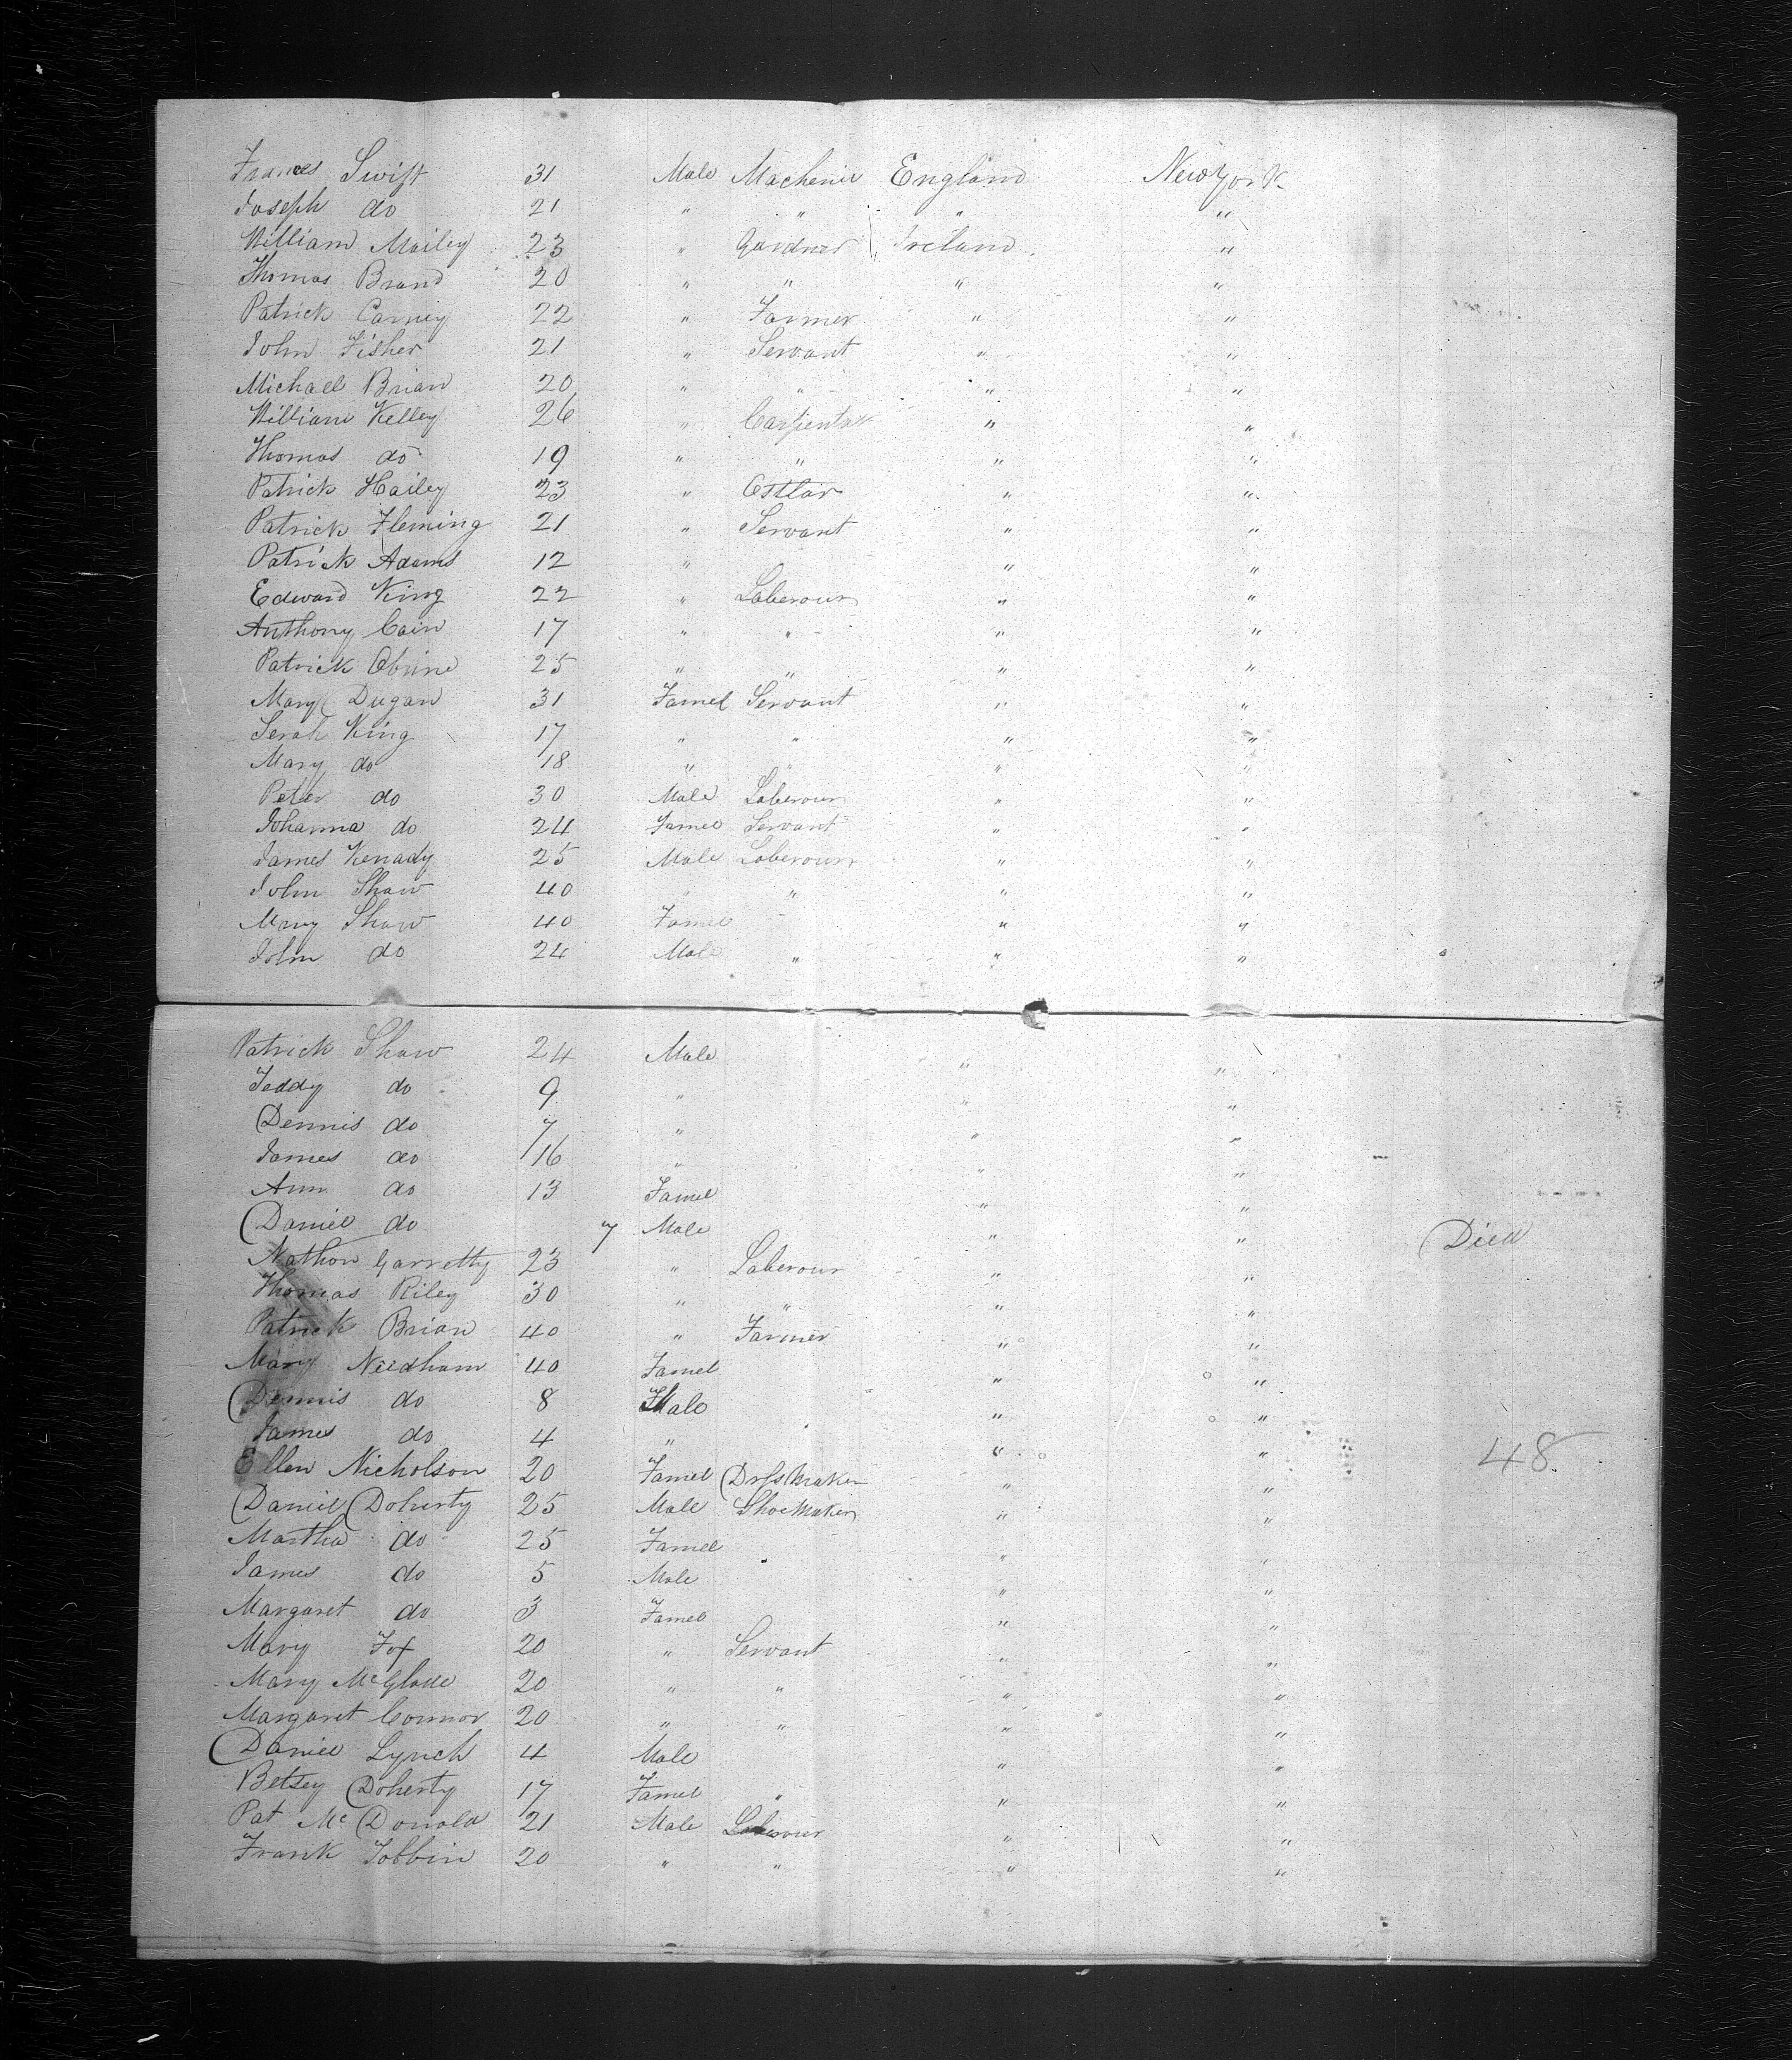 Frances Swift 31 Male Machenic England New York
Joseph do 21 " " " "
William Mailey 23 " Gardner Ireland "
Thomas Brand 20 " " " "
Patrick Carney 22 " Farmer " "
John Fisher 21 " Servant " "
Michael Brian 20 " " " "
William Kelley 26 " Carpenter " "
Thomas do 19 " " " "
Patrick Hailey 23 " Ostlar " "
Patrick Fleming 21 " Servant " "
Patrick Adams 12 " " "
Edward King 22 " Laberour " "
Anthony Cain 17 " " " "
Patrick Obrine 25 " " " "
Mary Dugan 31 Famel Servant " "
Serah King 17 " " " "
Mary do 18 " " " "
Peter do 30 Male Laberour " "
Johanna do 24 Famel Servant " "
James Kenady 25 Male Laberour " "
John Shaw 40 " " " "
Mary Shaw 40 Famel " "
John do 24 Male " " "
Patrick Shaw 24 Male " "
Teddy do 9 " " "
Dennis do 7 " " "
James do 16 " " "
Ann do 13 Famel " "
Daniel do 7 Male " " Died
Nathon Garretty 23 " Laberour " "
Thomas Riley 30 " " " "
Patrick Brian 40 " Farmer " "
Mary Needham 40 Famel " "
Dennis do 8 Male " "
James do 4 " " " 48
Ellen Nicholson 20 Famel DressMaker " "
Daniel Doherty 25 Male ShoeMaker " "
Martha do 25 Famel " "
James do 5 Male " "
Margaret do 3 Famel " "
Mary Fox 20 " Servant " "
Mary McGlone 20 " " " "
Margaret Connor 20 " " " "
Daniel Lynch 4 Male " "
Betsey Doherty 17 Famel " " "
Pat McDonald 21 Male Laberour " "
Frank Tobbin 20 " " " "